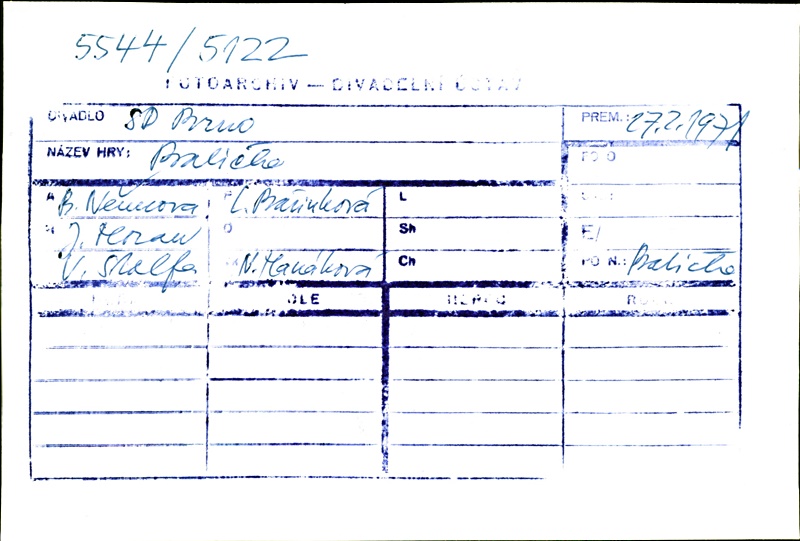 5544/5122
FOTOARCHIV — DIVADELNÍ ÚSTAV
DIVADLO SD Brno PREM.: 27.2.1971
NÁZEV HRY: Babička FOTO
A B. Němcová L. Batínková L
J. Moran O Sh E/
V. Štolfa N. Hanáková Ch PO N.: Babička
ROLE HEREC